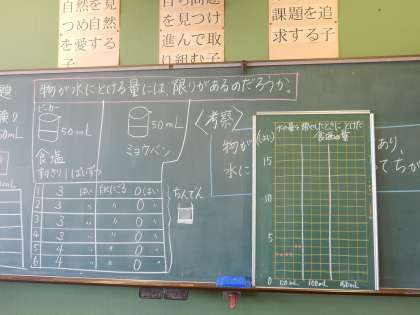 自然を見
つめ自然
を愛する
子
自ら問題
を見つけ
進んで取
り組む子
課題を追
求する子
物が水にとける量には、限りがあるのだろうか。
ビーカー
50mL
50mL
食塩
ミョウバン
すりきり1ぱいずつ
1 3 はい 白くにごる 0はい
2 3 〃 〃 0 〃
3 3 〃 〃 0 〃
4 3 〃 〃 0 〃
5 4 〃 〃 0 〃
6 4 〃 〃 0 〃
ちんでん
〈考察〉
物が
水に
あり、
てちが
水の量を
ときに とけた
食塩の量
(はい)
15
10
5
0
50mL 100mL 150mL